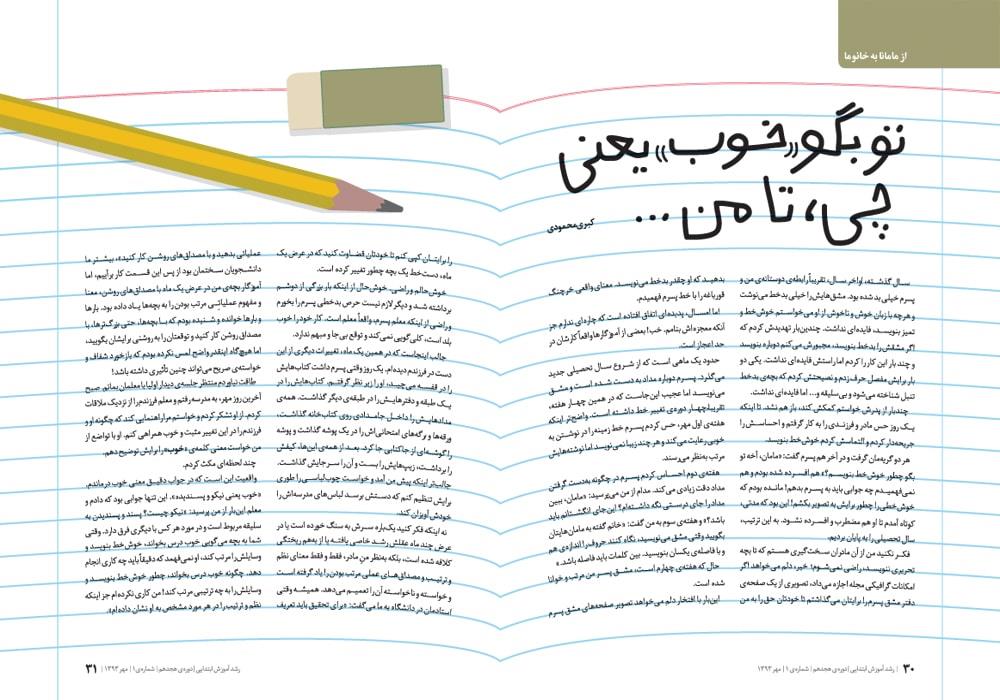 از مامانا به خانوما
تو بگو «خوب» یعنی
چی، تا من ...
کبری محمودی
سال گذشته، اواخر سال، تقریباً رابطه‌ی دوستانه‌ی من و
پسرم خیلی بد شده بود. مشق‌هایش را خیلی بدخط می‌نوشت
و هرچه با زبان خوش و ناخوش از او می‌خواستم خوش‌خط و
تمیز بنویسد، فایده‌ای نداشت. چندین‌بار تهدیدش کردم که
اگر مشقش را بدخط بنویسد، مجبورش می‌کنم دوباره بنویسد
و چند بار این کار را کردم اما راستش فایده‌ای نداشت. یکی دو
بار برایش مفصل حرف زدم و نصیحتش کردم که بچه‌ی بدخط
تنبل شناخته می‌شود و بی‌سلیقه و... اما فایده‌ای نداشت.
چندبار از پدرش خواستم کمکش کند، باز هم نشد. تا اینکه
یک روز حس مادر و فرزندی را به کار گرفتم و احساسش را
جریحه‌دار کردم و التماسش کردم خوش‌خط بنویسد.
هر دو گریه‌مان گرفت و در آخر هم پسرم گفت: «مامان، آخه تو
بگو چطور خوش‌خط بنویسم؟» هم افسرده شده بودم و هم
نمی‌فهمیدم چه جوابی باید به پسرم بدهم! مانده بودم که
خوش‌خطی را چطور برایش به تصویر بکشم! این بود که مدتی،
کوتاه آمدم تا او هم مضطرب و افسرده نشود. به این ترتیب،
سال تحصیلی را به پایان بردیم.
فکر نکنید من از آن مادران سخت‌گیری هستم که تا بچه
تحریری ننویسد، راضی نمی‌شوم؛ خیر، دلم می‌خواهد اگر
امکانات گرافیکی مجله اجازه می‌داد، تصویری از یک صفحه‌ی
دفتر مشق پسرم را برایتان می‌گذاشتم تا خودتان حق را به من
بدهید که او چقدر بدخط می‌نویسد. معنای واقعی خرچنگ
قورباغه را با خط پسرم فهمیدم.
اما امسال، پدیده‌ای اتفاق افتاده است که چاره‌ای ندارم جز
آنکه معجزه‌اش بنامم. خب! بعضی از آموزگارها واقعاً کارشان در
حد اعجاز است.
حدود یک ماهی است که از شروع سال تحصیلی جدید
می‌گذرد. پسرم دوباره مداد به دست شده است و مشق
می‌نویسد اما عجیب این‌جاست که در همین چهار هفته،
تقریباً چهار دوره‌ی تغییر خط داشته است. واضح‌تر اینکه
هفته‌ی اول مهر، حس کردم پسرم خط زمینه را در نوشتن به
خوبی رعایت می‌کند و هر چند زیبا نمی‌نویسد اما نوشته‌هایش
مرتب به‌نظر می‌رسند.
هفته‌ی دوم احساس کردم پسرم در چگونه به‌دست گرفتن
مداد دقت زیادی می‌کند. مدام از من می‌پرسید: «مامان، ببین
مداد را جای درستی نگه داشته‌ام؟ این جای انگشتانم باید
باشد؟» و هفته‌ی سوم به من گفت: «خانم گفته به مامان هایتان
بگویید وقتی مشق می‌نویسید، نگاه کنند حروف را اندازه‌ی هم
و با فاصله‌ی یکسان بنویسید. بین کلمات باید فاصله باشد.»
حال که هفته‌ی چهارم است، مشق پسر من مرتب و خوانا
شده است.
این‌بار با افتخار دلم می‌خواهد تصویر صفحه‌های مشق پسرم
را برایتان کپی کنم تا خودتان قضاوت کنید که در عرض یک
ماه، دست‌خط یک بچه چطور تغییر کرده است.
خوش‌حالم و راضی. خوش‌حال از اینکه بار بزرگی از دوشم
برداشته شد و دیگر لازم نیست حرص بدخطی پسرم را بخورم
و راضی از اینکه معلم پسرم، واقعاً معلم است. کار خود را خوب
بلد است، کلی‌گویی نمی‌کند و توقع بی‌جا و مبهم ندارد.
جالب اینجاست که در همین یک ماه، تغییرات دیگری از این
دست در فرزندم دیده‌ام. یک روز وقتی پسرم داشت کتاب‌هایش
را در قفسه می‌چید، او را زیر نظر گرفتم. کتاب‌هایش را در
یک طبقه و دفترهایش را در طبقه‌ی دیگر گذاشت. همه‌ی
مدادهایش را داخل جامدادی روی کتاب‌خانه گذاشت.
ورقه‌ها و برگه‌های امتحانی‌اش را در یک پوشه گذاشت و پوشه
را گوشه‌ای از جاکتابی جا کرد. بعد از همه‌ی این‌ها، کیفش
را برداشت، زیپ‌هایش را بست و آن را سر جایش گذاشت.
جالب‌تر اینکه پیش من آمد و خواست چوب‌لباسی را طوری
برایش تنظیم کنم که دستش برسد لباس‌های مدرسه‌اش را
خودش آویزان کند.
نه اینکه فکر کنید یک‌باره سرش به سنگ خورده است یا در
عرض چند ماه عقلش رشد خاصی یافته یا از به‌هم ریختگی
کلافه شده است، بلکه به‌نظر من مادر، فقط و فقط معنای نظم
و ترتیب و مصداق‌های عملی مرتب بودن را یاد گرفته است
و خواسته و ناخواسته آن را تعمیم می‌دهد. همیشه وقتی
استادمان در دانشگاه به ما می‌گفت: «برای تحقیق باید تعریف
عملیاتی بدهید و با مصداق‌های روشن کار کنید»، بیشتر ما
دانشجویان سختمان بود از پس این قسمت کار برآییم، اما
آموزگار بچه‌ی من در عرض یک ماه با مصداق‌های روشن، معنا
و مفهوم عملیاتی مرتب بودن را به بچه‌ها یاد داده بود. بارها
و بارها خوانده و شنیده بودم که با بچه‌ها، حتی بزرگ‌ترها، با
مصداق روشن کار کنید و توقعتان را به روشنی برایشان بگویید،
اما هیچ‌گاه اینقدر واضح لمس نکرده بودم که بازخورد شفاف و
خواسته‌ی صریح می‌تواند چنین تأثیری داشته باشد!
طاقت نیاوردم منتظر جلسه‌ی دیدار اولیا با معلمان بمانم. صبح
آخرین روز مهر، به مدرسه رفتم و معلم فرزندم را از نزدیک ملاقات
کردم. از او تشکر کردم و خواستم مرا راهنمایی کند که چگونه او و
فرزندم را در این تغییر مثبت و خوب همراهی کنم. او با تواضع از
من خواست معنی کلمه‌ی «خوب» را برایش توضیح دهم.
چند لحظه‌ای مکث کردم.
واقعیت این است که در جواب دقیق معنی خوب درماندم.
«خوب یعنی نیکو و پسندیده». این تنها جوابی بود که دادم و
معلم این‌بار از من پرسید: «نیکو چیست؟ پسند و پسندیدن به
سلیقه مربوط است و در مورد هر کس با دیگری فرق دارد. وقتی
شما به بچه می‌گویی خوب درس بخواند، خوش‌خط بنویسد و
وسایلش را مرتب کند، او نمی‌فهمد که دقیقاً باید چه کاری انجام
دهد. چگونه خوب درس بخواند، چطور خوش‌خط بنویسد و
وسایلش را به چه ترتیبی مرتب کند! من کاری نکرده‌ام جز اینکه
نظم و ترتیب را در هر مورد مشخص به او نشان داده‌ام».
۳۰ | رشد آموزش ابتدایی | دوره‌ی هجدهم | شماره‌ی ۱ | مهر ۱۳۹۳
رشد آموزش ابتدایی | دوره‌ی هجدهم | شماره‌ی ۱ | مهر ۱۳۹۳ | ۳۱